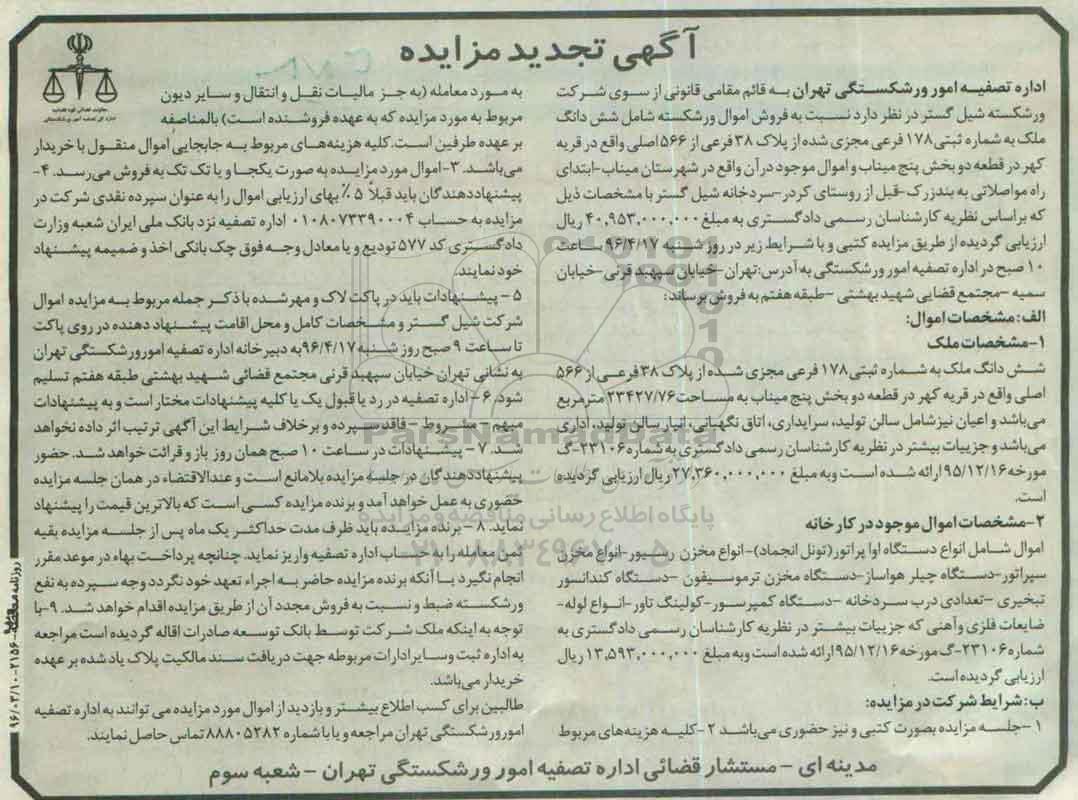 آگهی تجدید مزایده
اداره تصفیه امور ورشکستگی تهران به قائم مقامی قانونی از سوی شرکت
ورشکسته شیل گستر در نظر دارد نسبت به فروش اموال ورشکسته شامل شش دانگ
ملک به شماره ثبتی ۱۷۸ فرعی مجزی شده از پلاک ۳۸ فرعی از ۵۶۶ اصلی واقع در قریه
کهر در قطعه دو بخش پنج میناب و اموال موجود در آن واقع در شهرستان میناب-ابتدای
راه مواصلاتی به بندزرک-قبل از روستای کردر-سردخانه شیل گستر با مشخصات ذیل
که براساس نظریه کارشناسان رسمی دادگستری به مبلغ ۴۰,۹۵۳,۰۰۰,۰۰۰ ریال
ارزیابی گردیده از طریق مزایده کتبی و با شرایط زیر در روز شنبه ۹۶/۴/۱۷ ساعت
۱۰ صبح در اداره تصفیه امور ورشکستگی به آدرس:تهران-خیابان سپهبد قرنی-خیابان
سمیه-مجتمع قضایی شهید بهشتی-طبقه هفتم به فروش برساند:
الف:مشخصات اموال:
۱-مشخصات ملک
شش دانگ ملک به شماره ثبتی ۱۷۸ فرعی مجزی شده از پلاک ۳۸ فرعی از ۵۶۶
اصلی واقع در قریه کهر در قطعه دو بخش پنج میناب به مساحت ۲۳۴۲۷/۷۶ مترمربع
می‌باشد و اعیان نیز شامل سالن تولید، سرایداری، اتاق نگهبانی، انبار سالن تولید، اداری
می‌باشد و جزییات بیشتر در نظریه کارشناسان رسمی دادگستری به شماره ۲۳۱۰۶-گ
مورخه ۹۵/۱۲/۱۶ ارائه شده است وبه مبلغ ۲۷,۳۶۰,۰۰۰,۰۰۰ ریال ارزیابی گردیده
است.
۲-مشخصات اموال موجود در کارخانه
اموال شامل انواع دستگاه اوا پراتور(تونل انجماد)-انواع مخزن رسیور-انواع مخزن
سپراتور-دستگاه چیلر هواساز-دستگاه مخزن ترموسیفون -دستگاه کندانسور
تبخیری -تعدادی درب سردخانه -دستگاه کمپرسور-کولینگ تاور-انواع لوله-
ضایعات فلزی وآهنی که جزییات بیشتر در نظریه کارشناسان رسمی دادگستری به
شماره ۲۳۱۰۶-گ مورخه ۹۵/۱۲/۱۶ ارائه شده است وبه مبلغ ۱۳,۵۹۳,۰۰۰,۰۰۰ ریال
ارزیابی گردیده است.
ب:شرایط شرکت در مزایده:
۱-جلسه مزایده بصورت کتبی و نیز حضوری می‌باشد ۲-کلیه هزینه‌های مربوط
به مورد معامله (به جز مالیات نقل و انتقال و سایر دیون
مربوط به مورد مزایده که به عهده فروشنده است) بالمناصفه
بر عهده طرفین است.کلیه هزینه‌های مربوط به جابجایی اموال منقول با خریدار
می‌باشد. ۳-اموال مورد مزایده به صورت یکجا و یا تک تک به فروش می‌رسد. ۴-
پیشنهاددهندگان باید قبلاً ۵٪ بهای ارزیابی اموال را به عنوان سپرده نقدی شرکت در
مزایده به حساب ۰۱۰۸۰۷۳۳۹۰۰۰۴ اداره تصفیه نزد بانک ملی ایران شعبه وزارت
دادگستری کد ۵۷۷ تودیع و یا معادل وجه فوق چک بانکی اخذ و ضمیمه پیشنهاد
خود نمایند.
۵- پیشنهادات باید در پاکت لاک و مهر شده با ذکر جمله مربوط به مزایده اموال
شرکت شیل گستر و مشخصات کامل و محل اقامت پیشنهاد دهنده در روی پاکت
تا ساعت ۹ صبح روز شنبه ۹۶/۴/۱۷ به دبیرخانه اداره تصفیه امورورشکستگی تهران
به نشانی تهران خیابان سپهبد قرنی مجتمع قضائی شهید بهشتی طبقه هفتم تسلیم
شود. ۶- اداره تصفیه در رد یا قبول یک یا کلیه پیشنهادات مختار است و به پیشنهادات
مبهم - مشروط - فاقد سپرده و برخلاف شرایط این آگهی ترتیب اثر داده نخواهد
شد. ۷- پیشنهادات در ساعت ۱۰ صبح همان روز باز و قرائت خواهد شد. حضور
پیشنهاددهندگان در جلسه مزایده بلامانع است و عندالاقتضاء در همان جلسه مزایده
حضوری به عمل خواهد آمد و برنده مزایده کسی است که بالاترین قیمت را پیشنهاد
نماید. ۸- برنده مزایده باید ظرف مدت حداکثر یک ماه پس از جلسه مزایده بقیه
ثمن معامله را به حساب اداره تصفیه واریز نماید. چنانچه پرداخت بهاء در موعد مقرر
انجام نگیرد یا آنکه برنده مزایده حاضر به اجراء تعهد خود نگردد وجه سپرده به نفع
ورشکسته ضبط و نسبت به فروش مجدد آن از طریق مزایده اقدام خواهد شد. ۹-با
توجه به اینکه ملک شرکت توسط بانک توسعه صادرات اقاله گردیده است مراجعه
به اداره ثبت وسایر ادارات مربوطه جهت دریافت سند مالکیت پلاک یاد شده بر عهده
خریدار می‌باشد.
طالبین برای کسب اطلاع بیشتر و بازدید از اموال مورد مزایده می توانند به اداره تصفیه
امور ورشکستگی تهران مراجعه و یا با شماره ۸۸۸۰۵۲۸۲ تماس حاصل نمایند.
مدینه ای - مستشار قضائی اداره تصفیه امور ورشکستگی تهران - شعبه سوم
ParsNamadData
پایگاه اطلاع رسانی مناقصه و مزایده